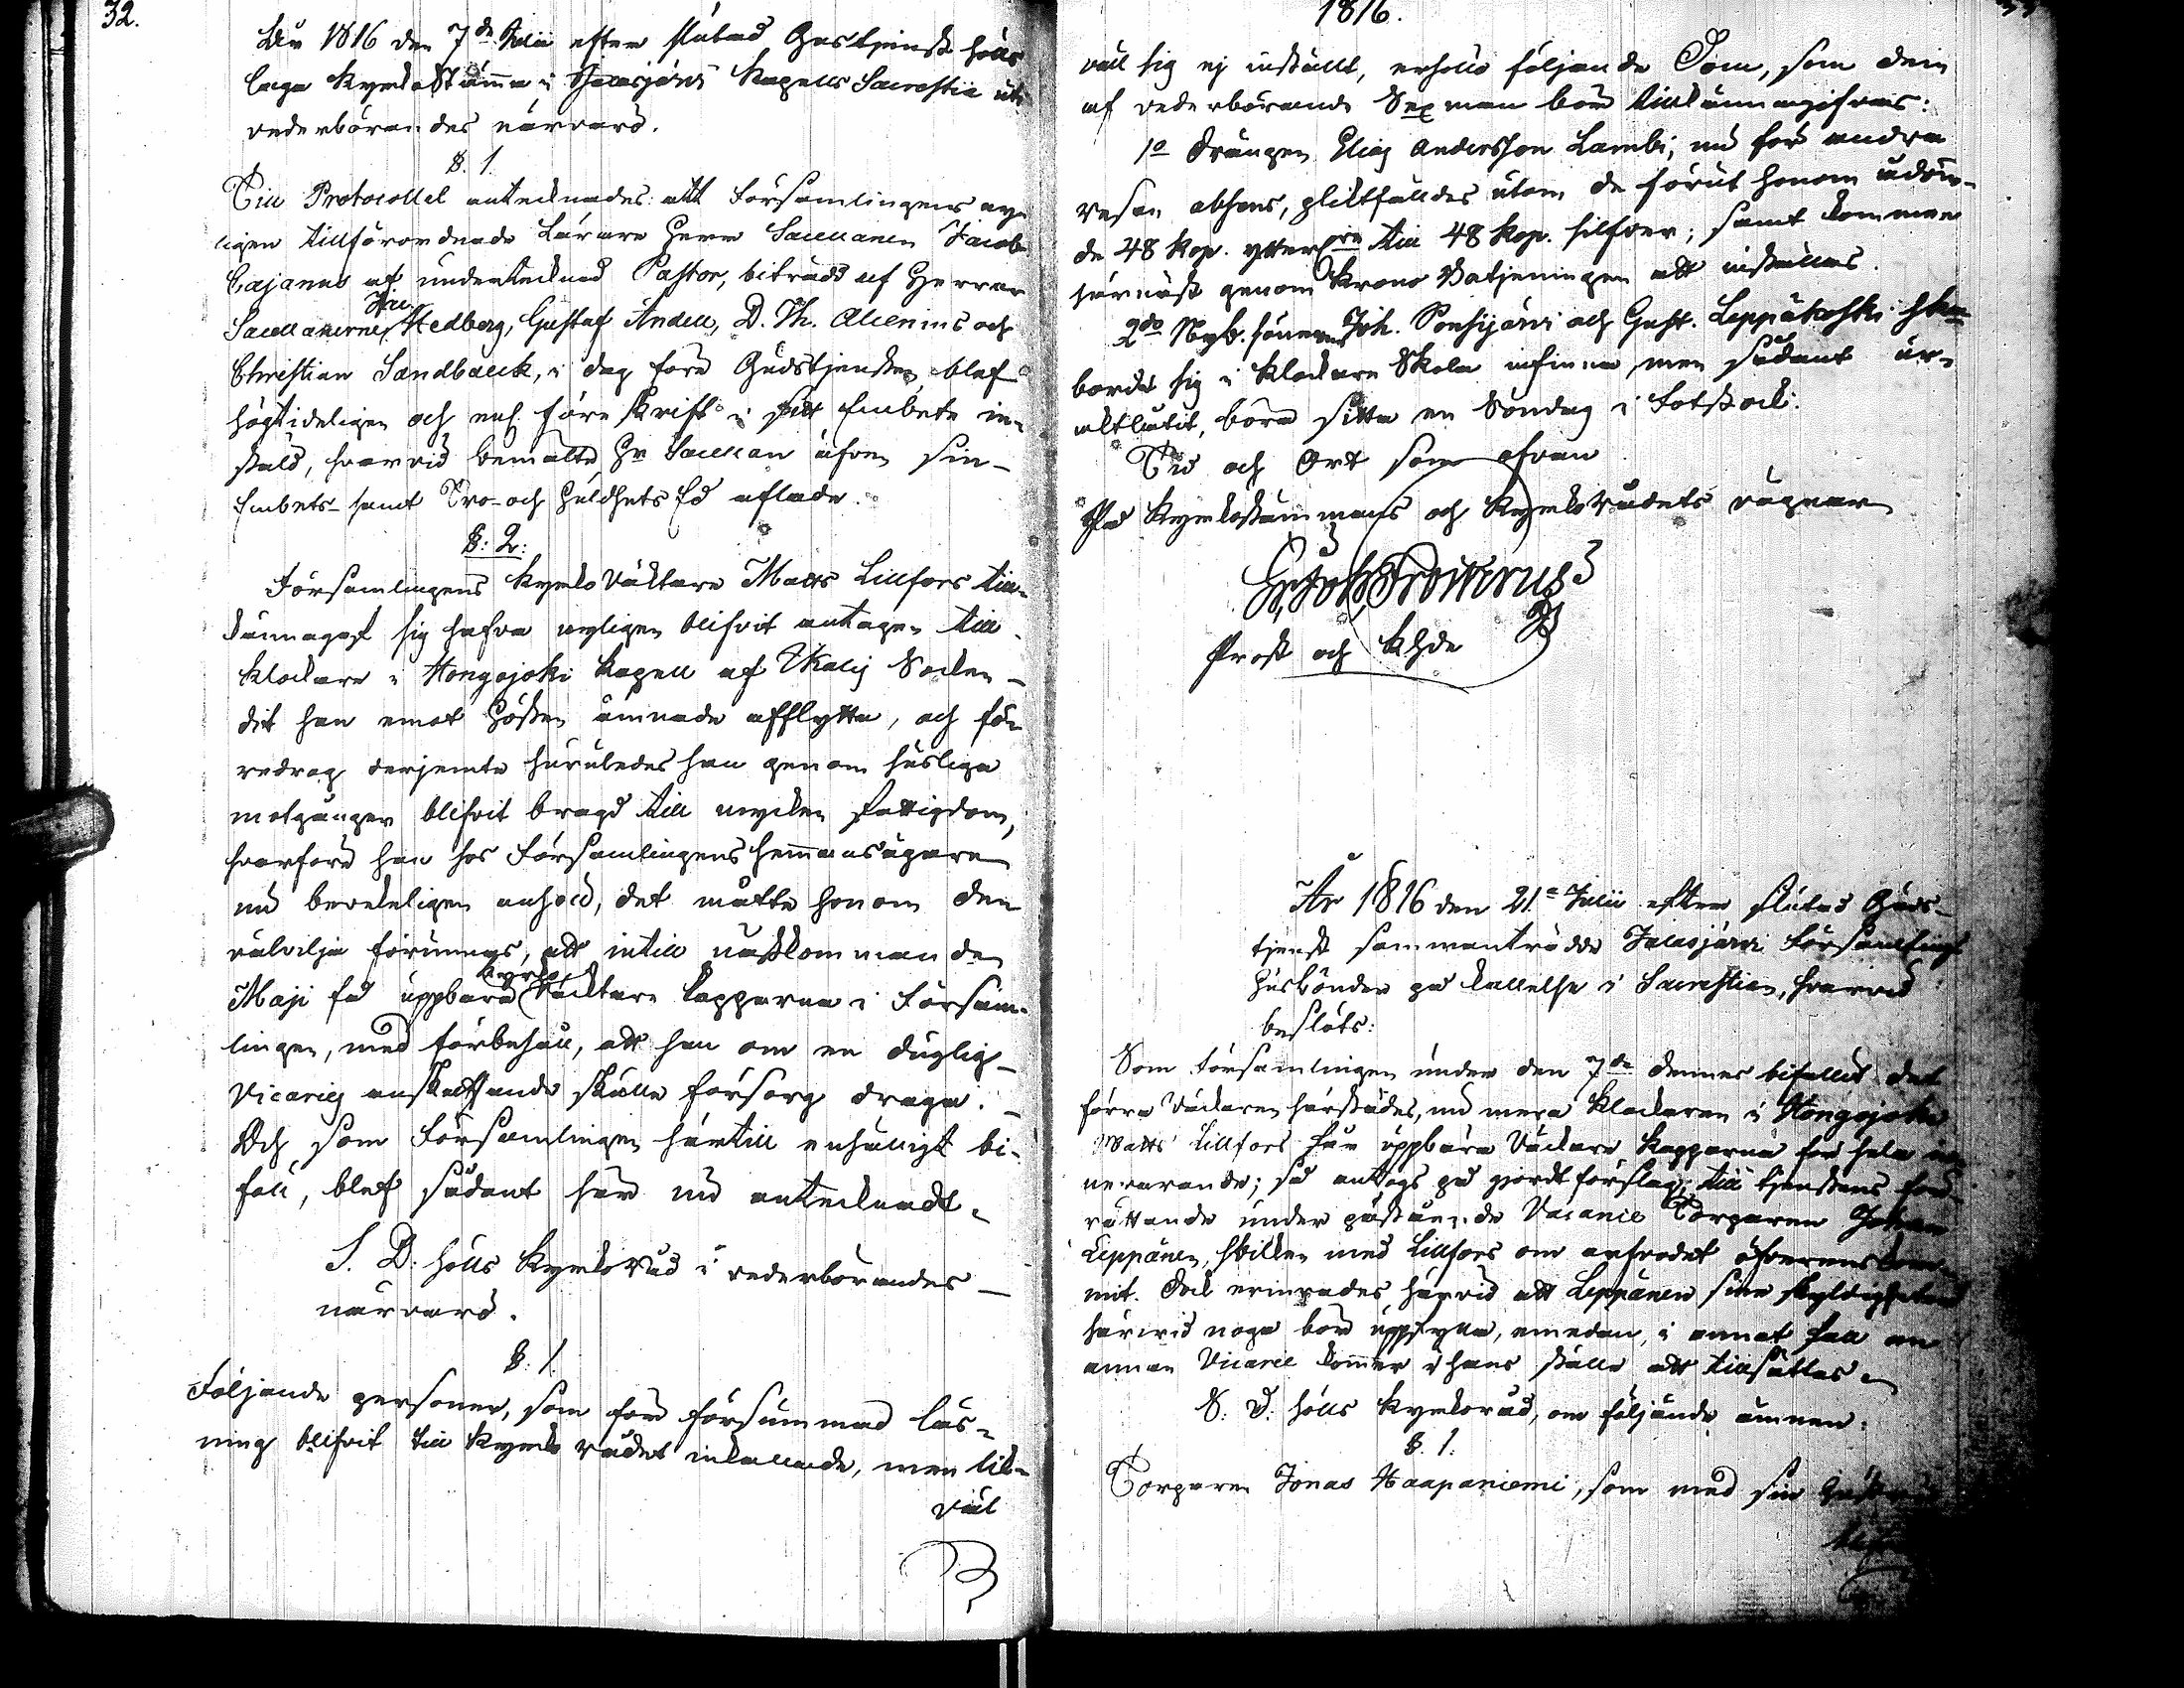 32.
Åhr 1816 den 7de Julii efter slutad Gudstjenst hölls
laga KyrckoStämma i Jalasjärvi Kapells Sacristia uti
vederbörandes närvaro.
§. 1.
Till Protocollet antecknades: att Församlingens ny-
ligen tillförordnade Lärare Herr Sacellanen Jacob
Cajanus af undertecknad Pastor, biträdd af Herrar
Sacellanerne Hedberg, Gustaf Andell, D. Th. Alcenius och
Christian Sandbacck, i dag före Gudstjensten, blef
högtideligen och enl. föreskrift i sitt Embete in-
stald, hvarvid bemälte Hr Sacellan äfven sin
Embets- samt Tro- och Huldhets Ed aflade.
§: 2:
Församlingens Kyrcko Väcktare Matts Lillfors till-
kännagaf sig hafva nyligen blifvit antagen till
Klockare i Hongojoki Kapell af Ikalis Socken
dit han emot Hösten ämnade afflytta, och fö-
redrog derjemte huruledes han genom husliga
motgånger blifvit bragd till mycken fattigdom,
hvarföre han hos Församlingens hemmansägare
nu bevekeligen anhöll, det måtte honom den
välvilja förunnas, att intill nästkommande
Maji få uppbära Kyrko Väcktare kapparna i Försam-
lingen, med förbehåll, att han om en duglig
Vicaries anskaffande skulle försorg draga.
Och som Församlingen härtill enhälligt bi-
föll, blef sådant här nu antecknadt.
S. D. hölls Kyrcko Råd i vederbörandes
närvaro.
§. 1.
Följande personer, som för försummad läs-
ning blifvit till Kyrcko rådet inkallade, men lik-
väl
1816.
väl sig ej inställt, erhöllo följande Dom, som dem
af vederbörande Sexman bör tillkännagifvas:
1o Drängen Elias Andersson Lambi, nu för andra
resan absens, pliktfälldes utom de förut honom ådöm-
de 48 Kop. ytterligare till 48 Kop. silfver; samt kommer
härnäst genom Krono Betjeningen att inställas.
2do Nyb. sönerna Joh. Ponsijärvi och Gust. Leppäkoski
borde sig i Klockare Skola infinna, men sådant
uraktlåtit, böra sitta en Söndag i Fotstock.
Tid och Ort som ofvan
På Kyrckostämmans och KyrckoRådets vägnar
Prost och Khde
År 1816 den 21e Julii efter slutad Guds-
tjenst sammanträdde Jalasjärvi Församlings
Husbönder på kallelse i Sacristian, hvarvid
beslöts:
Som Församlingen under den 7de dennes bifallit det
förra Väcktaren härstädes, nu mera Klockaren i Hongojoki
Matts Lillfors får uppbära Väcktare kapparna för hela
nevarande; så antogs på gjordt förslag, till tjenstens för-
rättande under påstående Vacance Torparen Johan
Leppänen, hvilken med Lillfors om arfvodet öfverenskom-
mit. Dock erinrades härvid att Leppänen sina skyldigheter
härvid noga bör uppfylla, emedan i annat fall en
annan Vicarie kommer i hans ställe att tillsättas.
S. D. hölls Kyrckoråd, om följande ämnen:
§. 1.
Torparen Jonas Haapaniemi, som med sin